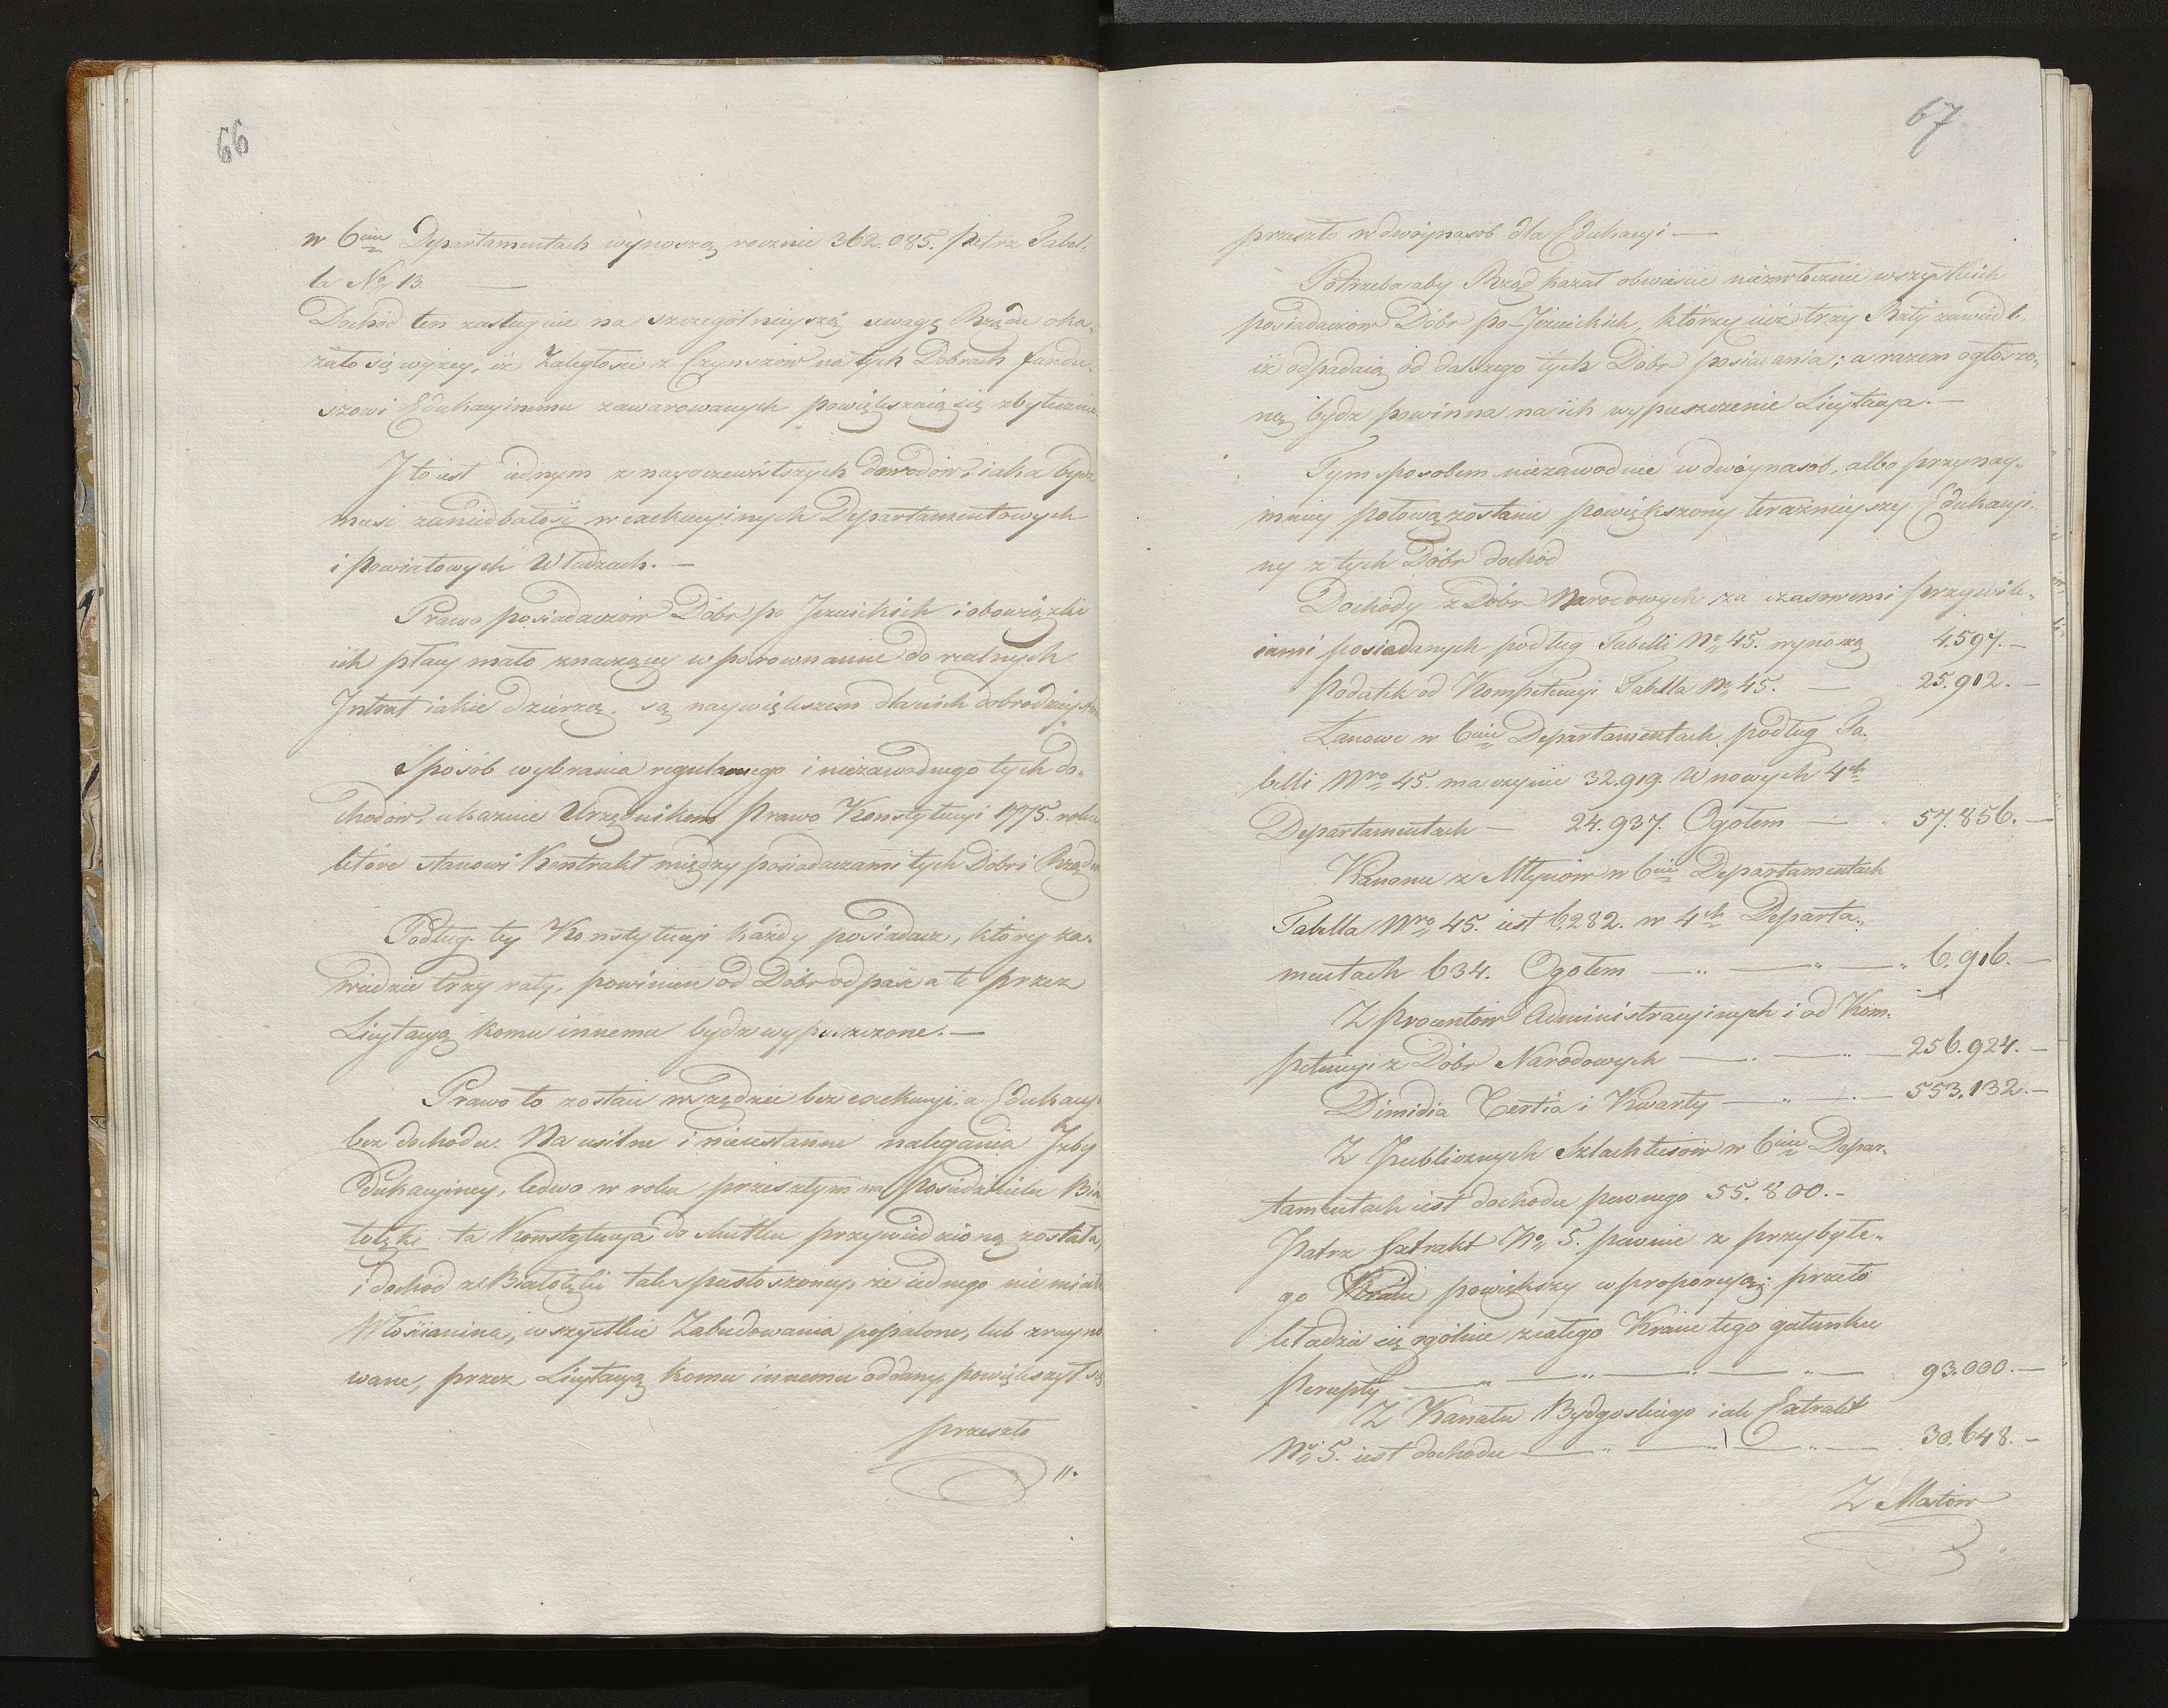 66
w 6ciu Departamentach wynoszą rocznie 362.085. patrz Tabel-
la No 13. —
Dochod ten zasługuie na szczególnieyszą uwagę Rządu oka-
zało się wyżey, iż Zaległości z Czynszów na tych Dobrach fundu-
szowi Edukacyinemu zawarowanych powiększaią się zbytecznie
I to iest iednym z nayoczewistszych dowodów, iaka bydz
musi zaniedbałość w exekucyinych Departamentowych
i Powiatowych Władzach. —
Prawo posiadaczów Dóbr po Jezuickich i obowiązki
ich płacy mało znaczącey w porownanie do realnych
Intrat iakie dzierżą są naywiększem dla nich dobrodzieystwem
Sposób wybrania regularnego i niezawodnego tych do-
chodów, ukazuie Urzędnikom Prawo Konstytucyi 1775. roku
które stanowi Kontrakt między posiadaczami tych Dóbr i Rządem
Podług tey Konstytucyi każdy posiadacz, który za-
wiedzie trzy raty, powinien od Dóbr odpaść a te przez
Licytacyą komu innemu bydz wypuszczone. —
Prawo to zostaie wszędzie bez exekucyi, a Edukacya
bez dochodu. Na usilne i nieustanne nalegania Izby
Edukacyiney, ledwo w roku przeszłym na Posiedzicielu Bia
łołęki ta Konstytucya do skutku przywiedzioną została,
i dochod z Białołęki tak spustoszoney, że iednego nie miała
Włościanina, wszystkie Zabudowania popalone, lub zruyno
wane, przez Licytacyą komu innemu oddany powiększył się
przeszło
67
przeszło w dwóynasób dla Edukacyi —
Potrzeba aby Rząd kazał obwieścić niezwłocznie wszystkich
posiadaczow Dóbr po-Jezuickich, którzy iuż trzy Raty zawiedli
iż odpadaią od dalszego tych Dóbr posiadania; a razem ogłoszo-
ną bydz powinna na ich wypuszczenie Licytacya. —
Tym sposobem niezawodnie w dwóynasób, albo przynay-
mniey połową zostanie powiększony teraźnieyszy Edukacyi-
ny z tych Dóbr dochód
Dochody z Dóbr Narodowych za czasowemi przywile-
iami posiadanych podług Tabelli No 45. wynoszą 4.597. —
Podatek od Kompetencyi Tabella No 45. — 25.912. —
Łanowe w 6ciu Departamentach podług Ta-
belli Nro 45. ma czynić 32.919. W nowych 4ch
Departamentach — 24.937. Ogołem — 57.856. —
Kanonu z Młynów w 6ciu Departamentach
Tabella Nro 45. iest 6.282. w 4ch Departa-
mentach 634. Ogołem — 6.916. —
Z Procentów Administracyinych i od Kom-
petencyi z Dóbr Narodowych — 256.924. —
Dimidia Tertia i Kwarty — 553.132. —
Z Publicznych Szlachtuzow w 6ciu Depar-
tamentach iest dochodu pewnego 55.800. —
Patrz Extrakt No 5. pewnie z przybyłe-
go Kraiu powiększy w proporcyą; przeto
kładzie się ogólnie z całego Kraiu tego gatunku
percepty — 93.000. —
Z Kanału Bydgoskiego iak Extrakt
No 5. iest dochodu — 30.648. —